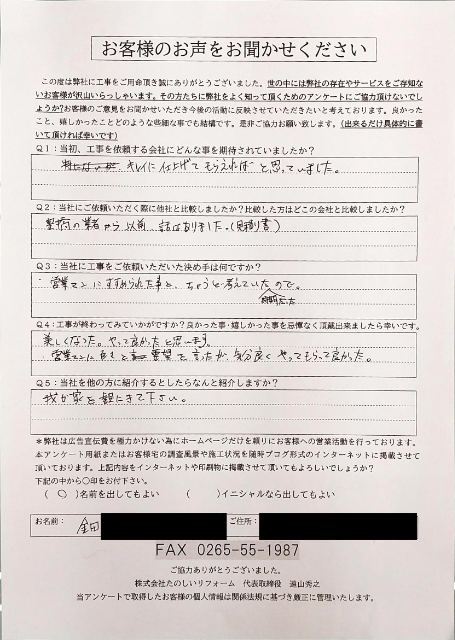 お客様のお声をお聞かせください
この度は弊社に工事をご用命頂き誠にありがとうございました。世の中には弊社の存在やサービスをご存知ない
お客様が沢山いらっしゃいます。その方たちに弊社をよく知って頂くためのアンケートにご協力頂けないでし
ょうか?お客様のご意見をお聞かせいただき今後の活動に反映させていただきたいと考えております。良かった
こと、嬉しかったことどのような些細な事でも結構です。是非ご協力お願い致します。(出来るだけ具体的に書
いて頂ければ幸いです)
Q1:当初、工事を依頼する会社にどんな事を期待されていましたか?
キレイに仕上げてもらえればと思っていました。
Q2:当社にご依頼いただく際に他社と比較しましたか?比較した方はどこの会社と比較しましたか?
の業者から以前、話はありました。(見積り書)
Q3:当社に工事をご依頼いただいた決め手は何ですか?
営業マンにすすめられた事と、ちょうど考えていたので。
時期だった
Q4:工事が終わってみていかがですか?良かった事・嬉しかった事を忌憚なく頂戴出来ましたら幸いです。
美しくなった。やって良かったと思います。
営業マンに色々と要望を言ったが、気分良くやってもらって良かった。
Q5:当社を他の方に紹介するとしたらなんと紹介しますか?
我が家を観にきて下さい。
*弊社は広告宣伝費を極力かけない為にホームページだけを頼りにお客様への営業活動を行っております。
本アンケート用紙またはお客様宅の調査風景や施工状況を随時ブログ形式のインターネットに掲載させて
頂いております。上記内容をインターネットや印刷物に掲載させて頂いてもよろしいでしょうか?
下記の中から〇印をお付下さい。
(〇)名前を出してもよい ( )イニシャルなら出してもよい
お名前: 金田 ご住所:
FAX 0265-55-1987
ご協力ありがとうございました。
株式会社たのしいリフォーム 代表取締役 遠山秀之
当アンケートで取得したお客様の個人情報は関係法規に基づき厳正に管理いたします。